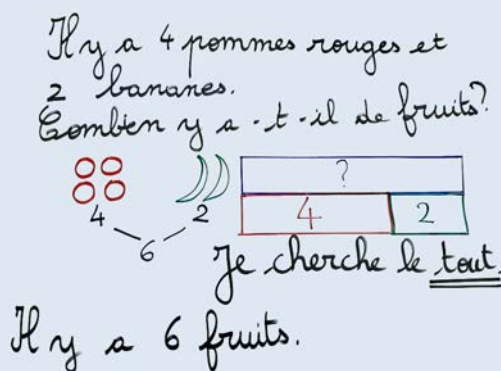 Il y a 4 pommes rouges et
2 bananes.
Combien y a-t-il de fruits?
?
4 2 4 2
6
Je cherche le tout.
Il y a 6 fruits.